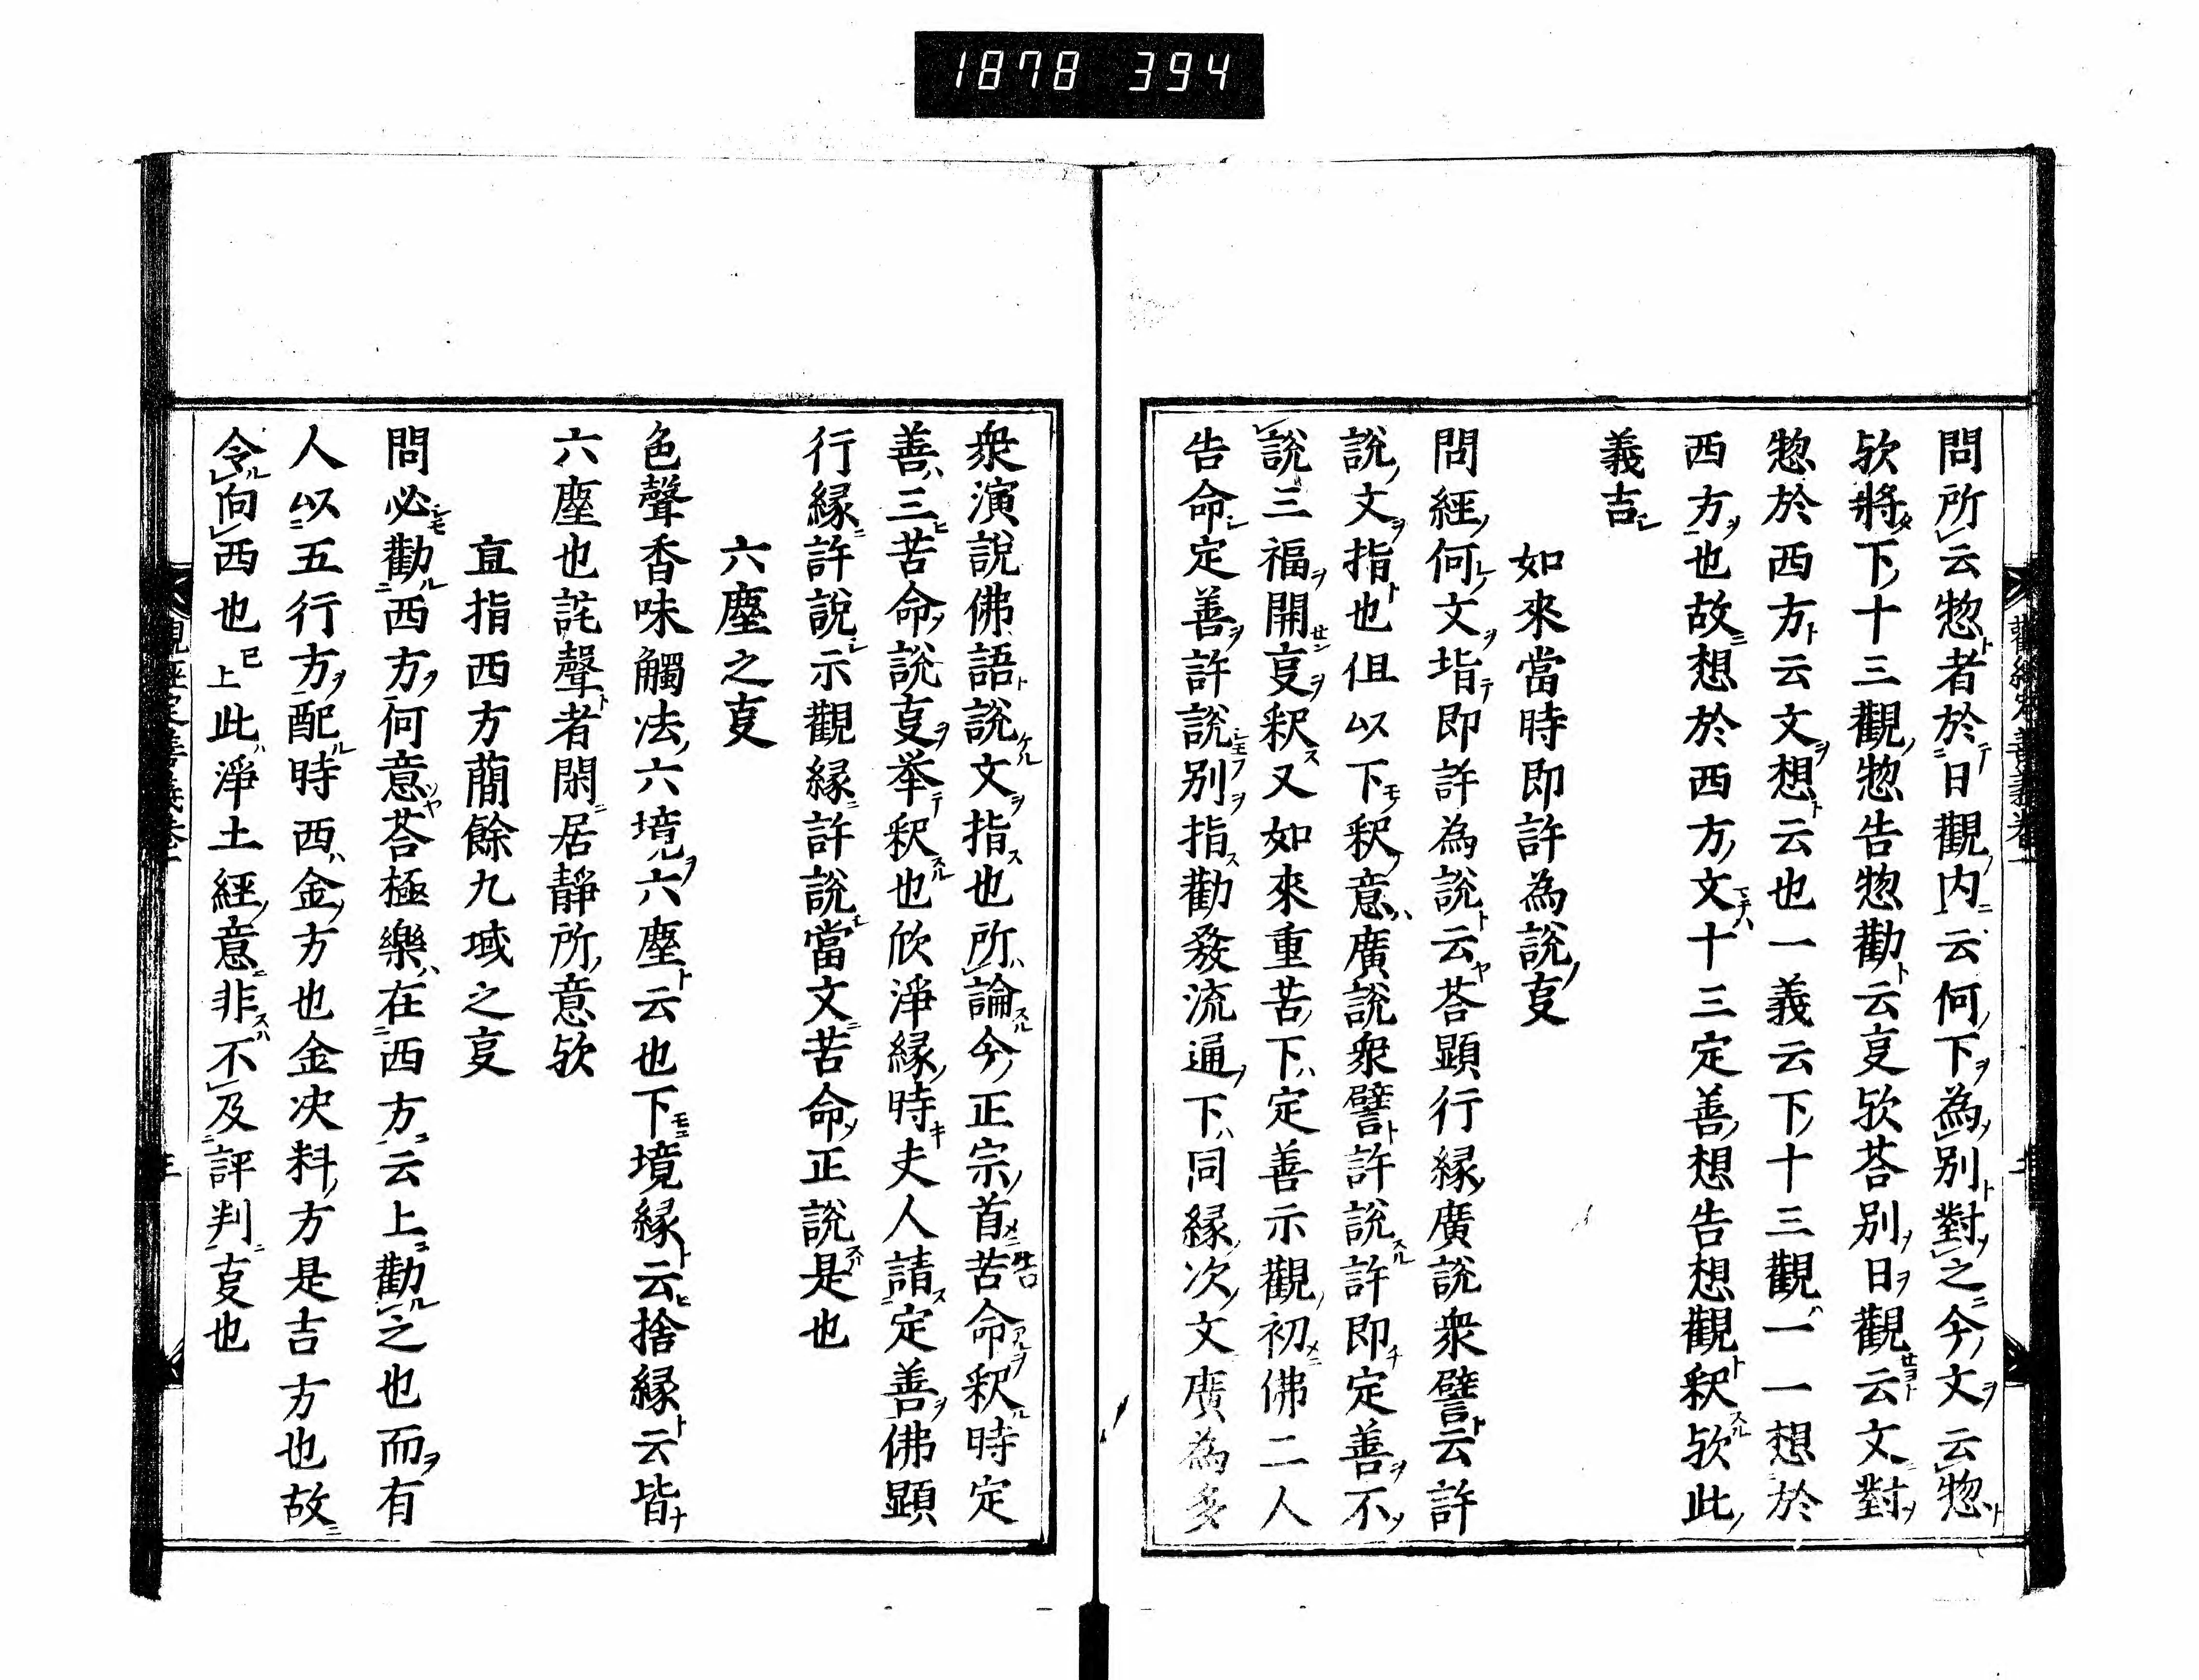 1878 394
問所云惣者於日觀内云何下為別對之今文云惣
欤將下十三觀惣告惣勸云㕝欤荅別日觀云文對
惣於西方云文想云也一義云下十三觀一一想於
西方也故想於西方文十三定善想告想觀釈欤此
義吉
如來當時即許為說㕝
問經何文指即許為說云荅顯行縁廣說衆譬云許
說文指也但以下釈意廣說衆譬許說許即定善不
說三福開㕝釈又如來重苦下定善示觀初佛二人
告命定善許說別指勸發流通下同縁次文廣為多
衆演說佛語說文指也所論今正宗首苦命釈時定
善三苦命說㕝举釈也欣淨縁時夫人請定善佛顯
行縁許說示觀縁許說當文苦命正說是也
六塵之㕝
色聲香味觸法六境六塵云也下境縁云捨縁云皆
六塵也詫聲者閑居靜所意欤
直指西方蕳餘九域之㕝
問必勸西方何意荅極樂在西方云上勸之也而有
人以五行方配時西金方也金决料方是吉方也故
令向西也已上此淨土經意非不及評判㕝也